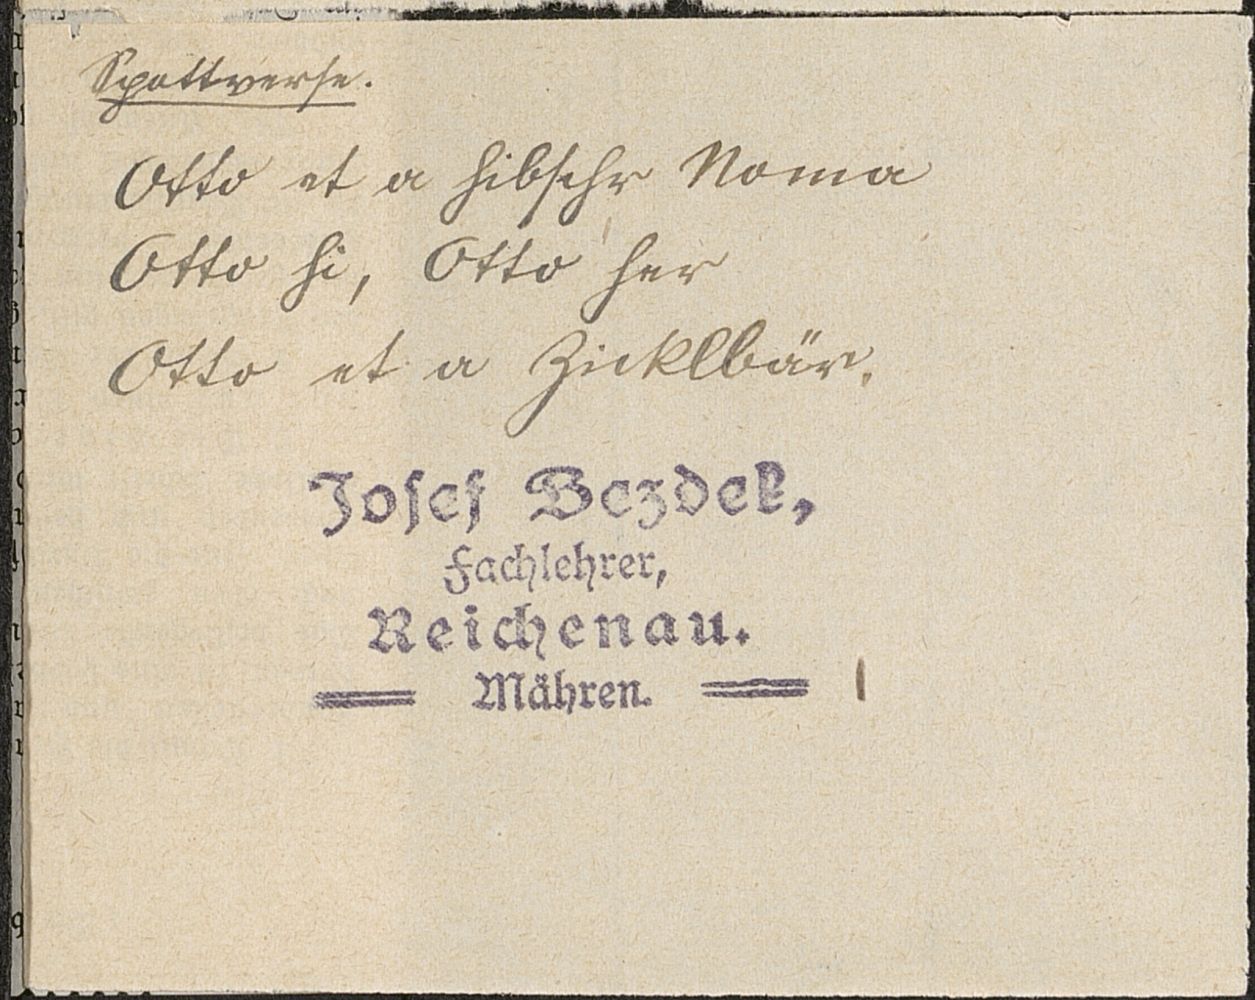 Spottverse.
Otto et a hibscher Noma
Otto hi, Otto her
Otto et a Zicklbär.
Josef Bezdek,
Fachlehrer,
Reichenau.
Mähren.